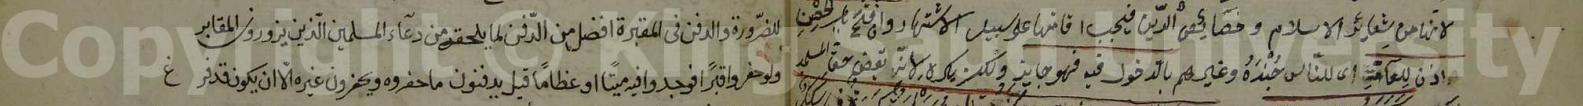 لانها من شعائر الاسلام وخصائص الدين فيجب اقامتها على سبيل الاشتهار وان فتح باب الحصن
اذن للعامة اى للناس جنده وغيرهم بالدخول فيه فهو جايز ولكن يكره لانه تقض حق المسلمين
للضرورة والدفن فى المقبرة افضل من الدفن لما يلحقه من دعاء المسلمين الذين يزورون المقابر
ولو حفروا قبرا فوجدوا فيه ميتا او عظاما قيل يدفنون ما حفروه ويحفرون غيره الا ان يكون قد فر غ